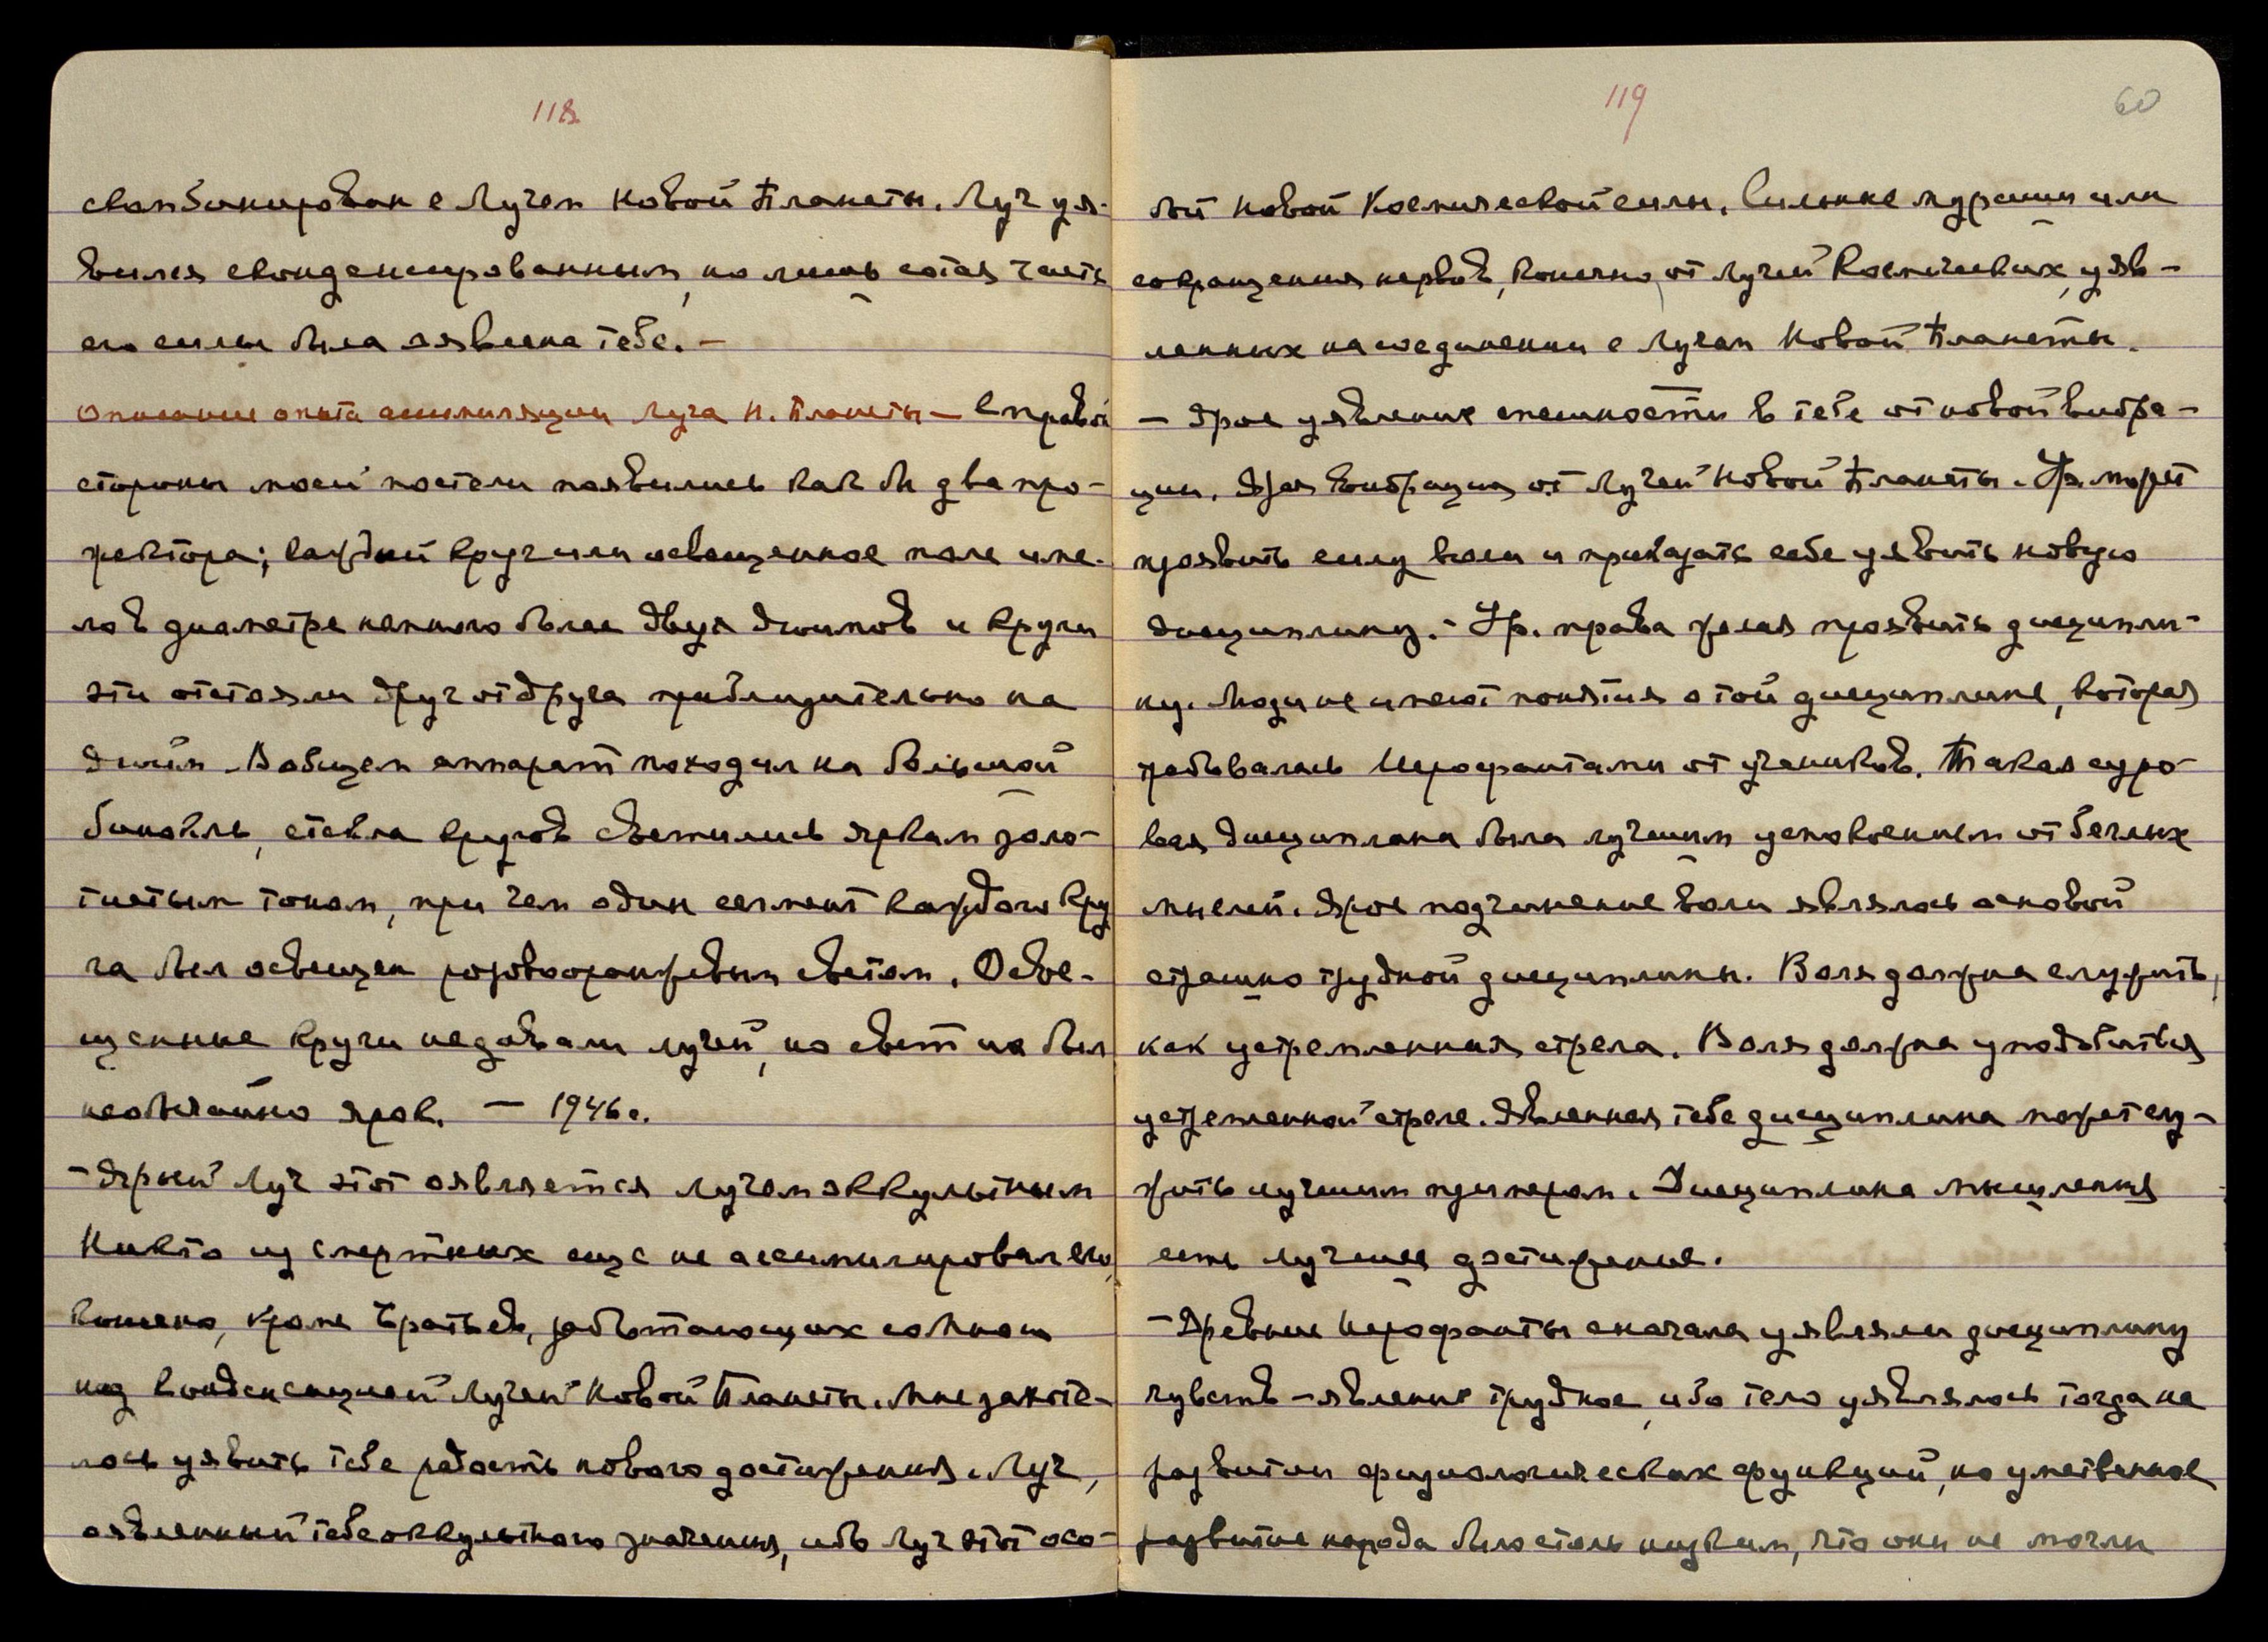 118
скомбинирован с Лучем Новой Планеты. Луч уя-
вился сконденсированным, но лишь сотая часть
его силы была оявлена тебе. –
Описание опыта ассимиляции Луча Н. Планеты – С правой
стороны моей постели появились как бы два про-
жектора; каждый круг или освещенное поле име-
ло в диаметре немного более двух дюймов и круги
эти отстояли друг от друга приблизительно на
дюйм. В общем аппарат походил на большой
бинокль, стекла кругов светились ярким золо-
тистым тоном, при чем один сегмент каждого кру
га был освещен розовооранжевым светом. Осве-
щенные круги не давали лучей, но свет их был
необычайно ярок. – 1946 г.
– Ярый Луч этот оявляется лучем оккультным
Никто из смертных еще не ассимилировал его,
конечно, кроме Братьев, работающих со Мною
над конденсацией Лучей Новой Планеты. Мне захоте-
лось уявить тебе радость нового достижения. Луч,
оявленный тебе оккультного значения, ибо Луч этот осо-
119
60
бый новой Космической силы. Сильные мурашки или
сокращения нервов, конечно, от Лучей Космических, уяв-
ленных на соединении с Лучам Новой Планеты.
– Ярое уявление спешности в тебе от новой вибра-
ции. Ярая вибрация от Лучей Новой Планеты. Ур. может
проявить силу воли и приказать себе уявить новую
дисциплину. – Ур. права желая проявить дисципли-
ну. Люди не имеют понятия о той дисциплине, которая
требовалась Иерофантами от учеников. Такая суро-
вая дисциплина была лучшим успокоением от беглых
мыслей. Ярое подчинение воли являлось основой
страшно трудной дисциплины. Воля должна служить,
как устремленная стрела. Воля должна уподобиться
устремленной стреле. Явленная тебе дисциплина может слу-
жить лучшим примером. Дисциплина мышления
есть лучшее достижение.
– Древние Иерофанты сначала уявляли дисциплину
чувств – явление трудное, ибо тело уявлялось тогда на
развитии физиологических функций, но умственное
развитие народа было столь низким, что они не могли